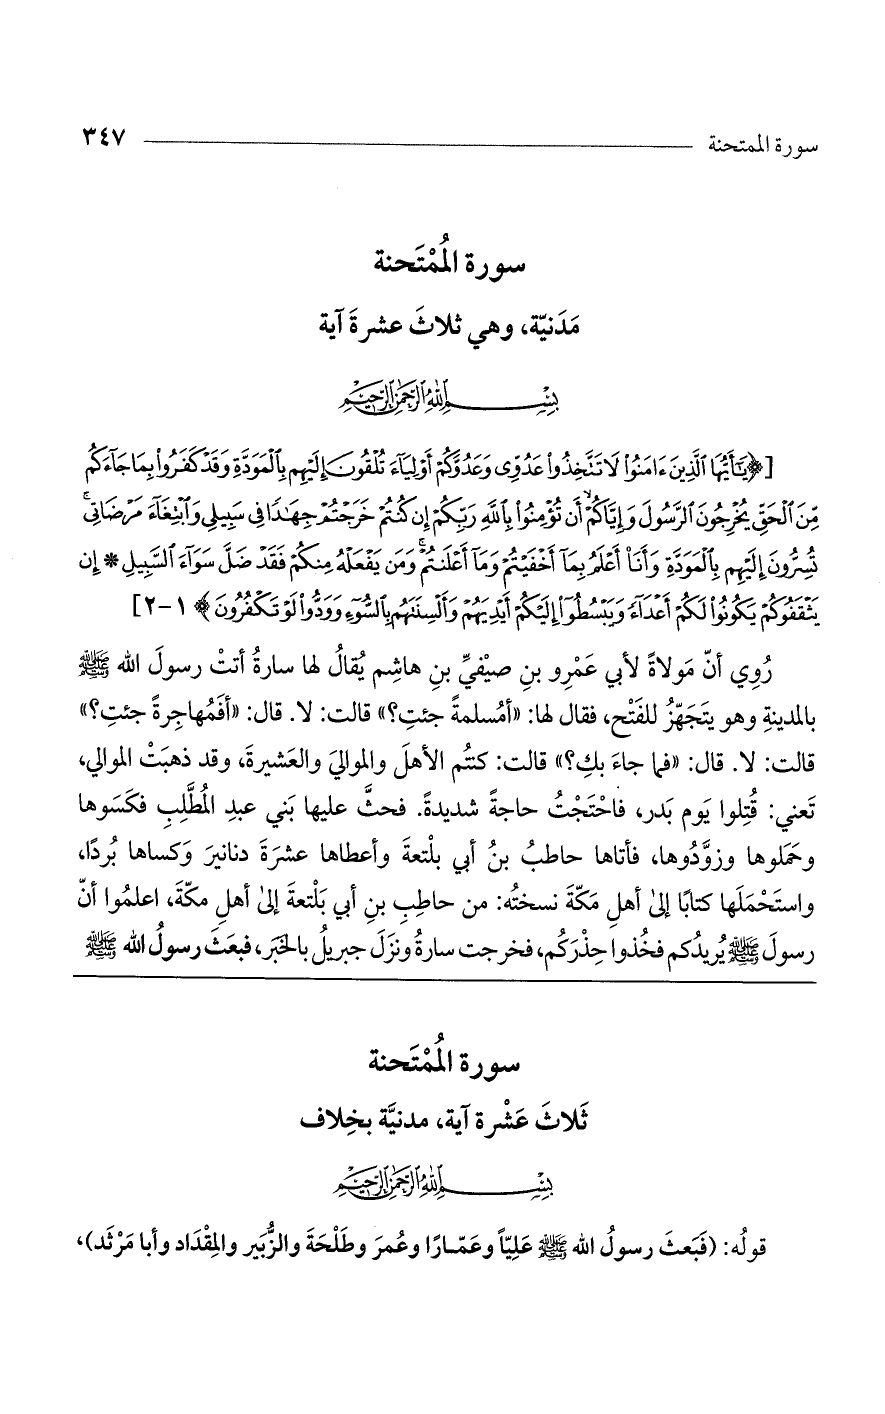 سورة الممتحنة ٣٤٧
سورة المُمْتَحنة
مَدَنيّة، وهي ثلاثَ عشرةَ آية
بِسْمِ اللَّهِ الرَّحْمَٰنِ الرَّحِيمِ
[﴿يَٰٓأَيُّهَا ٱلَّذِينَ ءَامَنُوا۟ لَا تَتَّخِذُوا۟ عَدُوِّى وَعَدُوَّكُمْ أَوْلِيَآءَ تُلْقُونَ إِلَيْهِم بِٱلْمَوَدَّةِ وَقَدْ كَفَرُوا۟ بِمَا جَآءَكُم
مِّنَ ٱلْحَقِّ يُخْرِجُونَ ٱلرَّسُولَ وَإِيَّاكُمْ ۙ أَن تُؤْمِنُوا۟ بِٱللَّهِ رَبِّكُمْ إِن كُنتُمْ خَرَجْتُمْ جِهَٰدًا فِى سَبِيلِى وَٱبْتِغَآءَ مَرْضَاتِى ۚ
تُسِرُّونَ إِلَيْهِم بِٱلْمَوَدَّةِ وَأَنَا۠ أَعْلَمُ بِمَآ أَخْفَيْتُمْ وَمَآ أَعْلَنتُمْ ۚ وَمَن يَفْعَلْهُ مِنكُمْ فَقَدْ ضَلَّ سَوَآءَ ٱلسَّبِيلِ * إِن
يَثْقَفُوكُمْ يَكُونُوا۟ لَكُمْ أَعْدَآءً وَيَبْسُطُوٓا۟ إِلَيْكُمْ أَيْدِيَهُمْ وَأَلْسِنَتَهُم بِٱلسُّوٓءِ وَوَدُّوا۟ لَوْ تَكْفُرُونَ﴾ ١-٢]
رُوِي أنّ مَولاةً لأبي عَمْرِو بنِ صيْفيِّ بنِ هاشِم يُقالُ لها سارةُ أتتْ رسولَ الله ﷺ
بالمدينةِ وهو يتَجَهّزُ للفَتْح، فقال لها: «أمُسلمةً جئتِ؟» قالت: لا. قال: «أفَمُهاجِرةً جئتِ؟»
قالت: لا. قال: «فما جاءَ بكِ؟» قالت: كنتُم الأهلَ والمواليَ والعَشيرةَ، وقد ذهبَتْ الموالي،
تَعني: قُتِلوا يَوم بَدر، فاحْتَجْتُ حاجةً شديدةً. فحثَّ عليها بَني عبدِ المُطَّلِبِ فكَسَوها
وحَمَلوها وزوَّدُوها، فأتاها حاطبُ بنُ أبي بلْتعةَ وأعطاها عشرَةَ دنانيرَ وَكساها بُردًا،
واستَحْمَلَها كتابًا إلىٰ أهلِ مَكّةَ نسختُه: من حاطِبِ بنِ أبي بَلْتعةَ إلىٰ أهلِ مكّةَ، اعلمُوا أنّ
رسولَ ﷺ يُريدُكم فخُذوا حِذْرَكُم، فخرجت سارةُ ونزَلَ جبريلُ بالخَبَر، فبعَثَ رسولُ الله ﷺ
سورة المُمْتَحنة
ثَلاثَ عَشْرة آية، مدنيَّة بخِلاف
بِسْمِ اللَّهِ الرَّحْمَٰنِ الرَّحِيمِ
قولُه: (فَبَعثَ رسولُ الله ﷺ عَلِيّاً وعَمّارًا وعُمرَ وطَلْحَةَ والزُّبَير والمِقْدَاد وأبا مَرْثَد)،